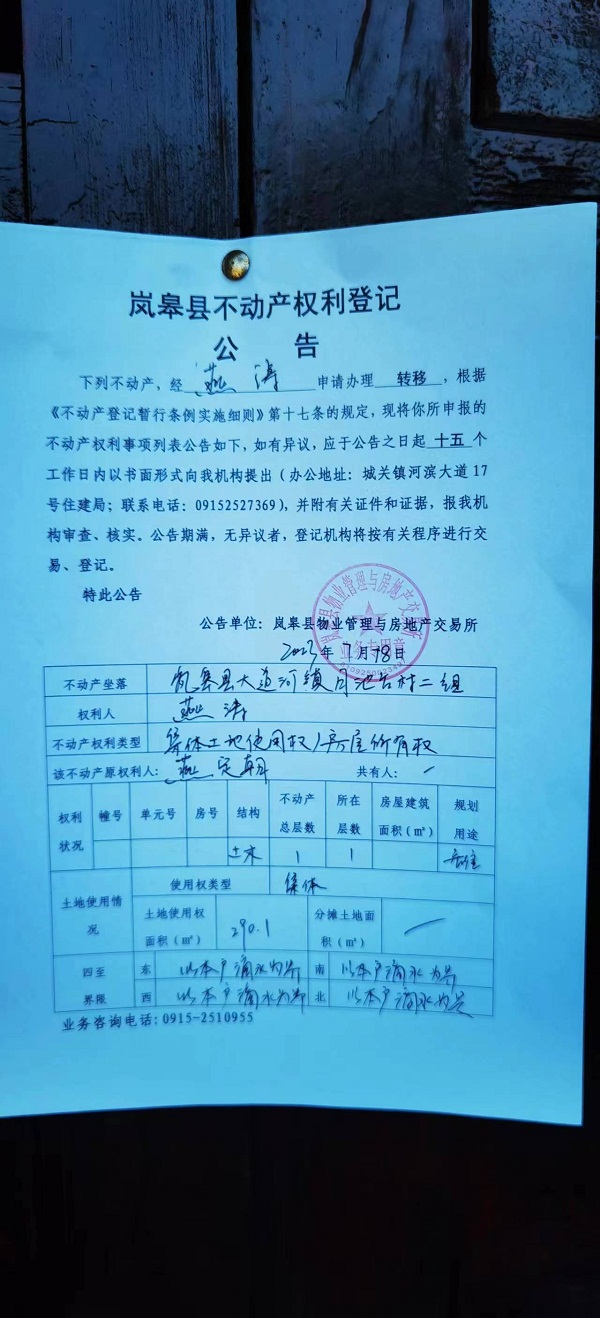 岚皋县不动产权利登记
公 告
下列不动产，经 燕涛 申请办理 转移 ，根据
《不动产登记暂行条例实施细则》第十七条的规定，现将你所申报的
不动产权利事项列表公告如下，如有异议，应于公告之日起 十五 个
工作日内以书面形式向我机构提出（办公地址：城关镇河滨大道17
号住建局；联系电话：09152527369），并附有关证件和证据，报我机
构审查、核实。公告期满，无异议者，登记机构将按有关程序进行交
易、登记。
特此公告
岚皋县物业管理与房地产交易所
业务专用章
公告单位：岚皋县物业管理与房地产交易所
2023年7月18日
不动产坐落 岚皋县大道河镇月池台村二组
权利人 燕涛
不动产权利类型 集体土地使用权/房屋所有权
该不动产原权利人：燕 朝 共有人：/
权利状况 幢号 单元号 房号 结构 不动产总层数 所在层数 房屋建筑面积（㎡） 规划用途
土木 1 1 居住
土地使用情况 使用权类型 集体
土地使用权面积（㎡） 290.1 分摊土地面积（㎡） /
四至界限 东 以本户滴水为界 南 以本户滴水为界
西 以本户滴水为界 北 以本户滴水为界
业务咨询电话：0915-2510955